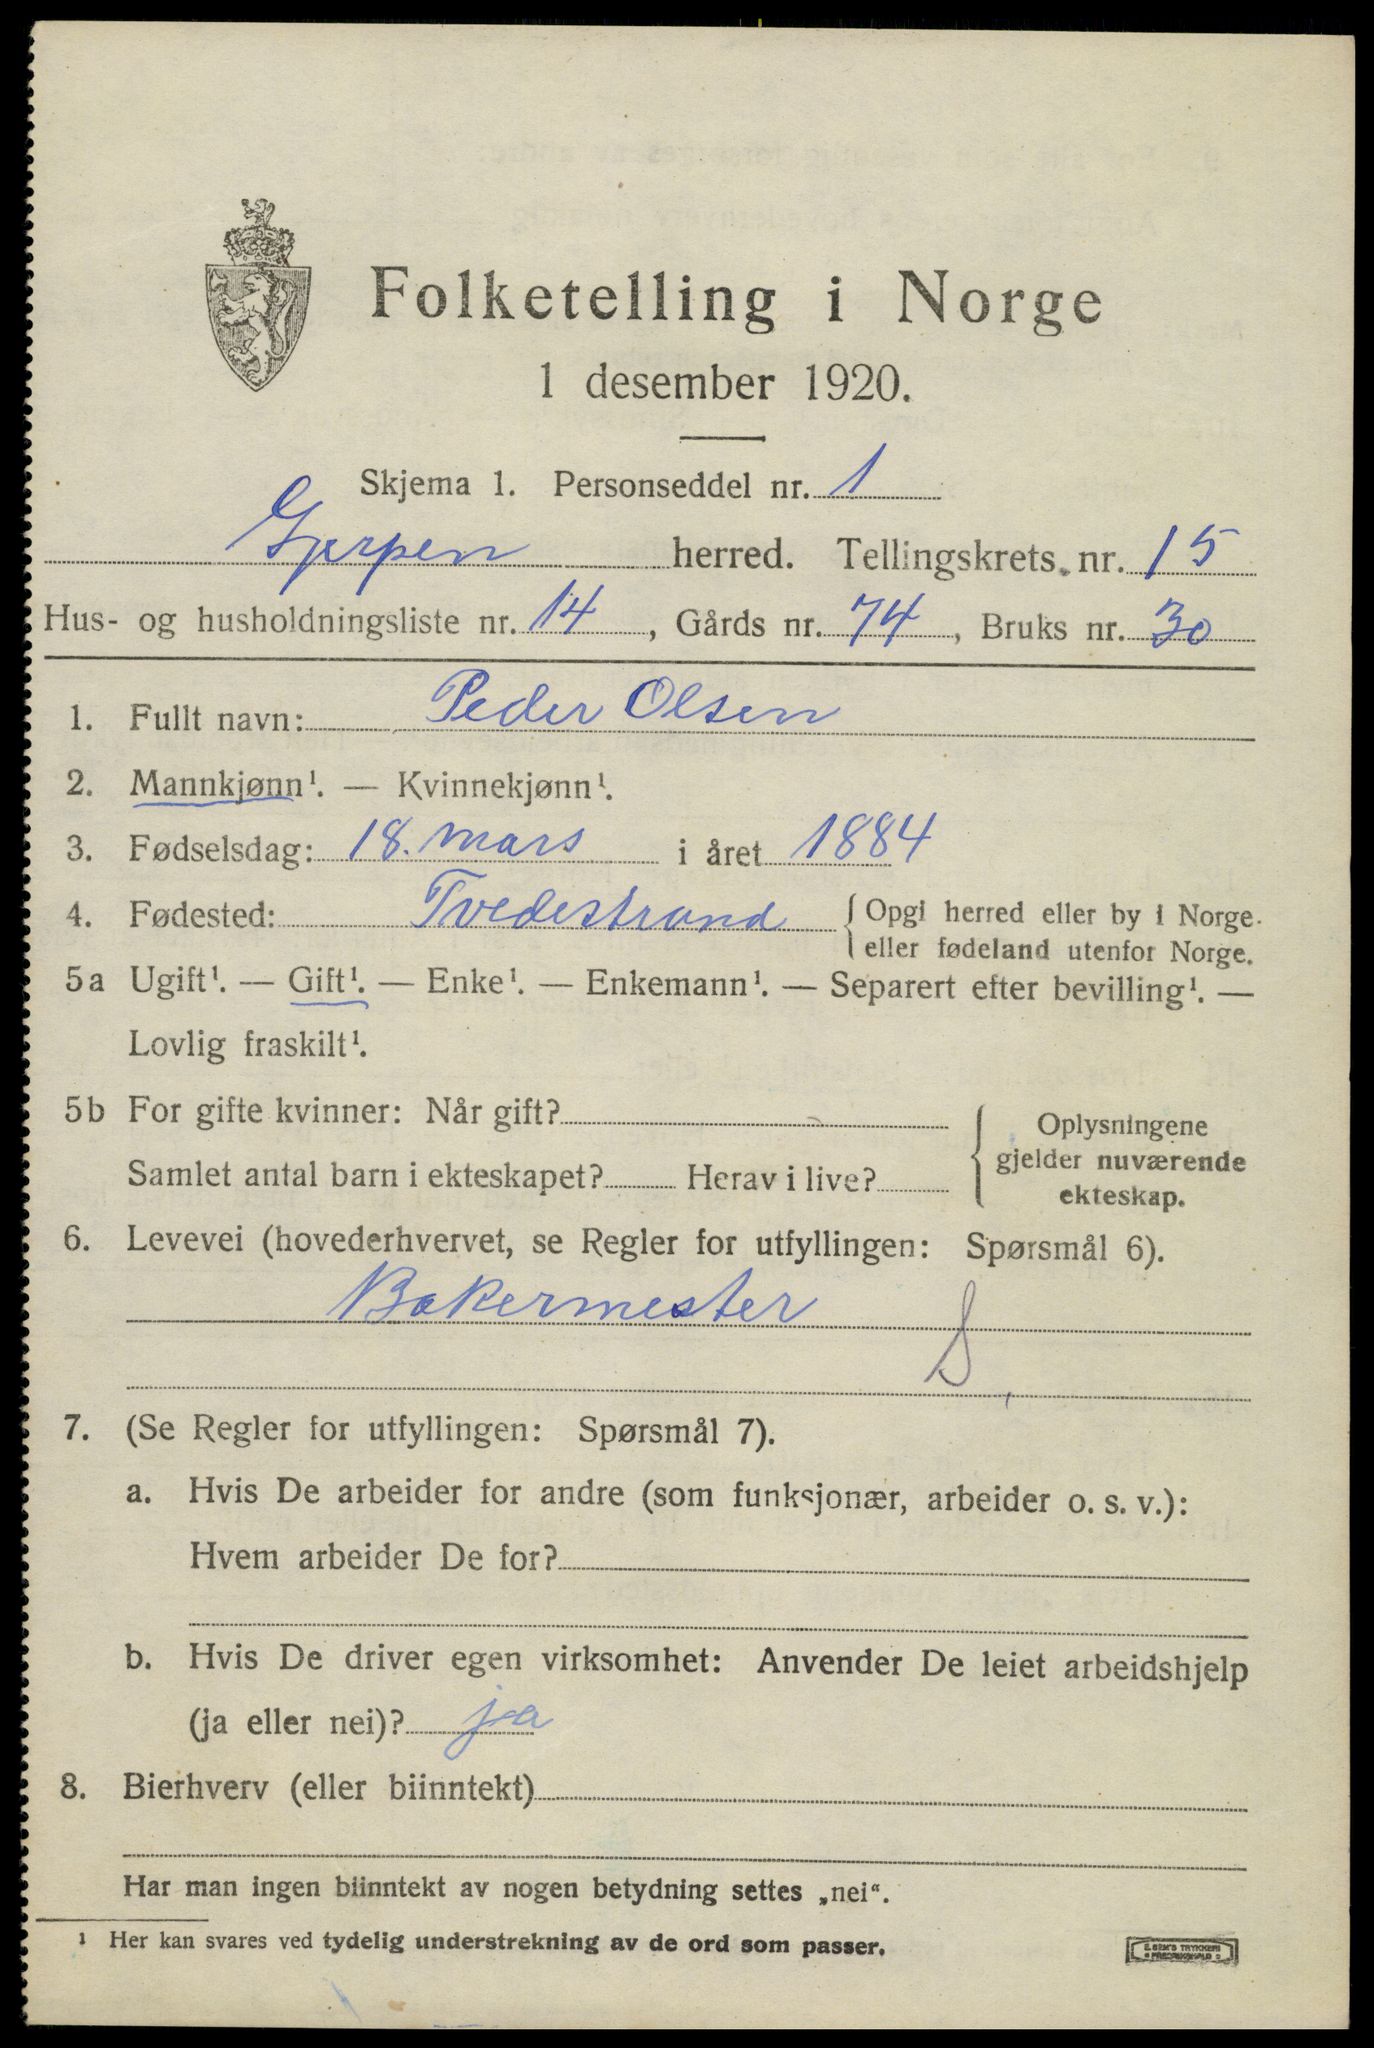 Folketelling i Norge
1 desember 1920.
Skjema 1. Personseddel nr. 1
Gjerpen herred. Tellingskrets. nr. 15
Hus- og husholdningsliste nr. 14, Gårds nr. 74, Bruks nr. 30
1. Fullt navn: Peder Olsen
2. Mannkjønn¹. — Kvinnekjønn¹.
3. Fødselsdag: 18. mars i året 1884
4. Fødested: Tvedestrand { Opgi herred eller by i Norge
eller fødeland utenfor Norge.
5a Ugift¹. — Gift¹. — Enke¹. — Enkemann¹. — Separert efter bevilling¹. —
Lovlig fraskilt¹.
5b For gifte kvinner: Når gift?
Samlet antal barn i ekteskapet? Herav i live?
Oplysningene
gjelder nuværende
ekteskap.
6. Levevei (hovederhvervet, se Regler for utfyllingen: Spørsmål 6).
Bakermester
S
7. (Se Regler for utfyllingen: Spørsmål 7).
a. Hvis De arbeider for andre (som funksjonær, arbeider o. s. v.):
Hvem arbeider De for?
b. Hvis De driver egen virksomhet: Anvender De leiet arbeidshjelp
(ja eller nei)? ja
8. Bierhverv (eller biinntekt)
Har man ingen biinntekt av nogen betydning settes „nei“.
¹ Her kan svares ved tydelig understrekning av de ord som passer.
E. SEM'S TRYKKERI
FREDRIKSHALD